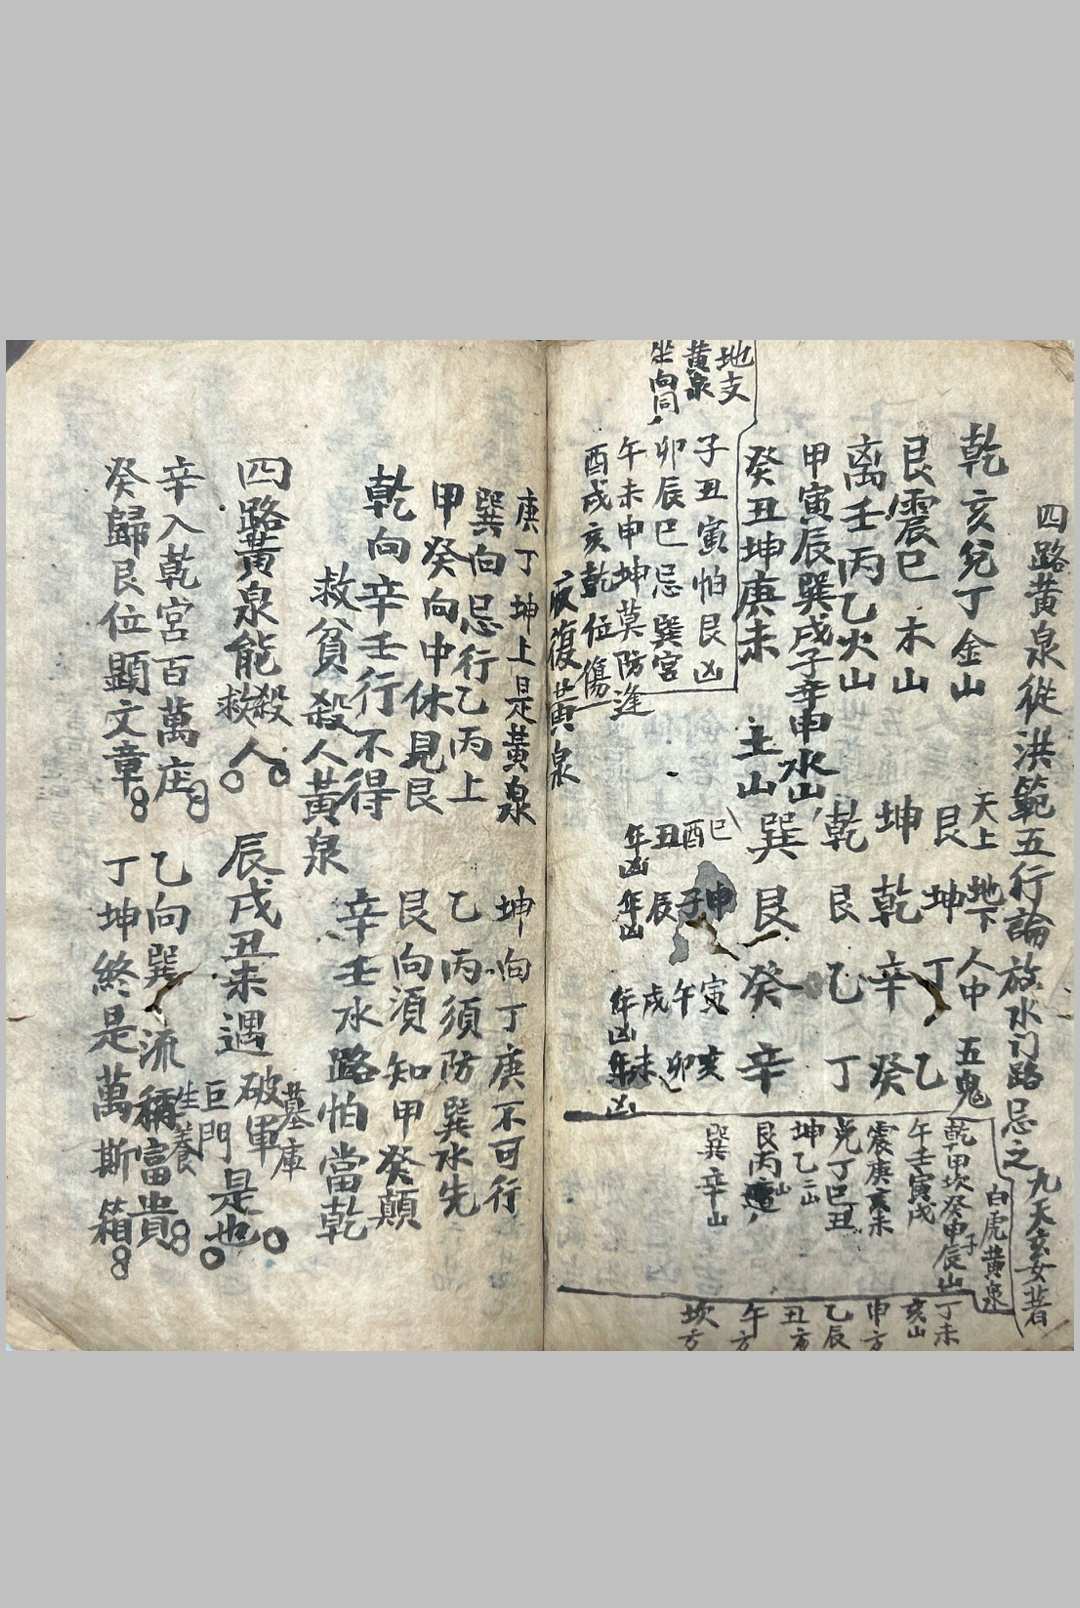 四路黄泉從洪範五行論放水门路忌之 九天玄女著
乾亥兌丁金山
艮震巳木山
离壬丙乙火山
甲寅辰巽戌子辛申水山
癸丑坤庚未土山
天上 地下 人中 五鬼
艮 坤 丁 乙
坤 乾 辛 癸
乾 艮 乙 丁
巽 艮 癸 辛
巳酉丑年凶
申子辰年凶
寅午戌年凶
亥卯未年凶
白虎黄泉
乾甲坎癸申子辰山 丁未
午壬寅戌 亥山
震庚亥未 申方
兌丁巳丑 乙辰
坤乙二山 丑方
艮丙山 午方
巽辛山 坎方
地支
黄泉
坐向同
子丑寅怕艮凶
卯辰巳忌巽宮
午未申坤莫防逢
酉戌亥乾位傷
反復黄泉
庚丁坤上是黃泉 坤向丁庚不可行
巽向忌行乙丙上 乙丙須防巽水先
甲癸向中休見艮 艮向須知甲癸顛
乾向辛壬行不得 辛壬水路怕當乾
救貧殺人黃泉
四路黄泉能殺救人 辰戌丑未遇破軍是也
墓庫
巨門
生養
辛入乾宮百萬庄 乙向巽流稱富貴
癸歸艮位顯文章 丁坤終是萬斯箱